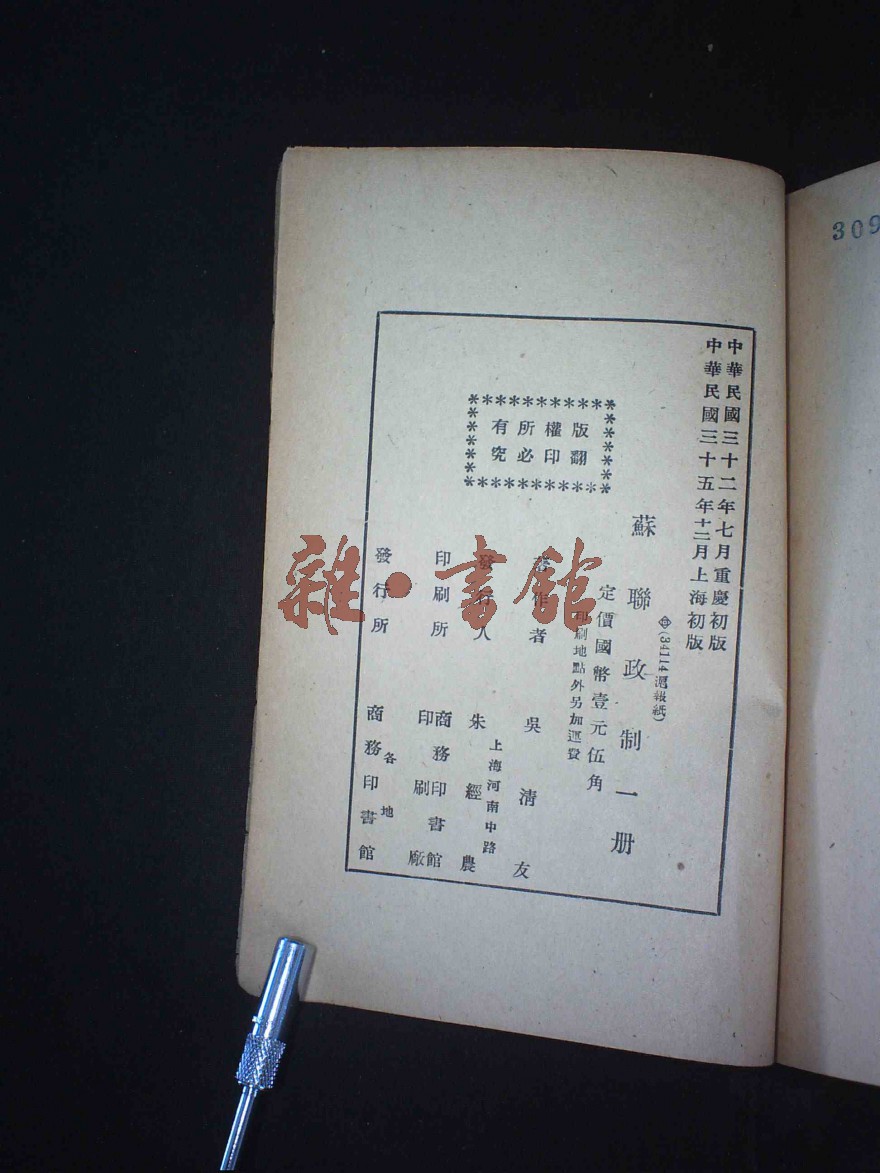 中華民國三十二年七月重慶初版
中華民國三十五年十二月上海初版
(34114滬報紙)
蘇聯政制一册
定價國幣壹元伍角
印刷地點外另加運費
版權所有
翻印必究
著作者 吳清友
發行人 朱經農
上海河南中路
印刷所 商務印書館
印刷廠
發行所 各地
商務印書館
雜·書館
309